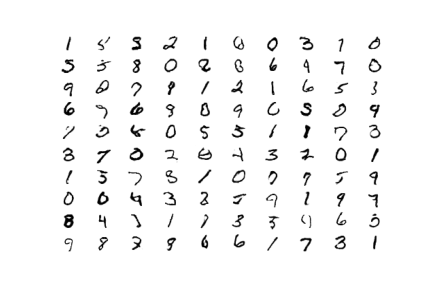 1 5 5 2 1 0 0 3 1 0
5 5 8 0 2 8 6 9 7 0
9 0 7 9 1 2 1 6 5 3
6 9 6 9 0 9 6 5 0 9
1 5 0 5 5 1 1 7 3
8 7 0 2 0 4 3 2 0 1
1 5 7 8 1 0 7 9 5 9
0 0 9 3 8 5 9 1 9 7
8 4 3 1 1 3 5 4 6 5
9 8 3 8 6 6 1 7 3 1